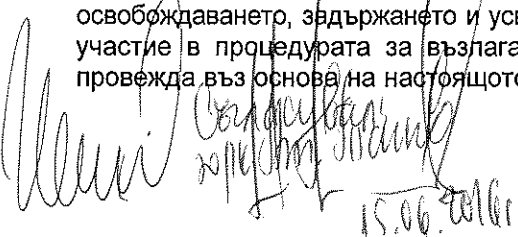 освобождаването, задържането и ус
участие в процедурата за възлага
провежда въз основа на настоящот
Съгласувал:
юрист
15.06.2016г